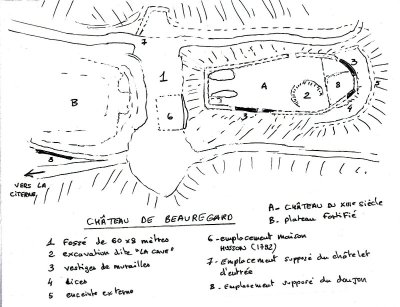 7
1
3
B
A
2
8
5
4
6
3
3
VERS LA
CITERNE
CHÂTEAU DE BEAUREGARD
A - CHÂTEAU DU XIIIe siècle
B - plateau fortifié
1 Fossé de 60 x 8 mètres
2 excavation dite "LA CAVE"
3 vestiges de murailles
4 lices
5 enceinte externe
6 - emplacement maison
HUSSON (1792)
7 - Emplacement supposé du châtelet
d'entrée
8 - Emplacement supposé du donjon